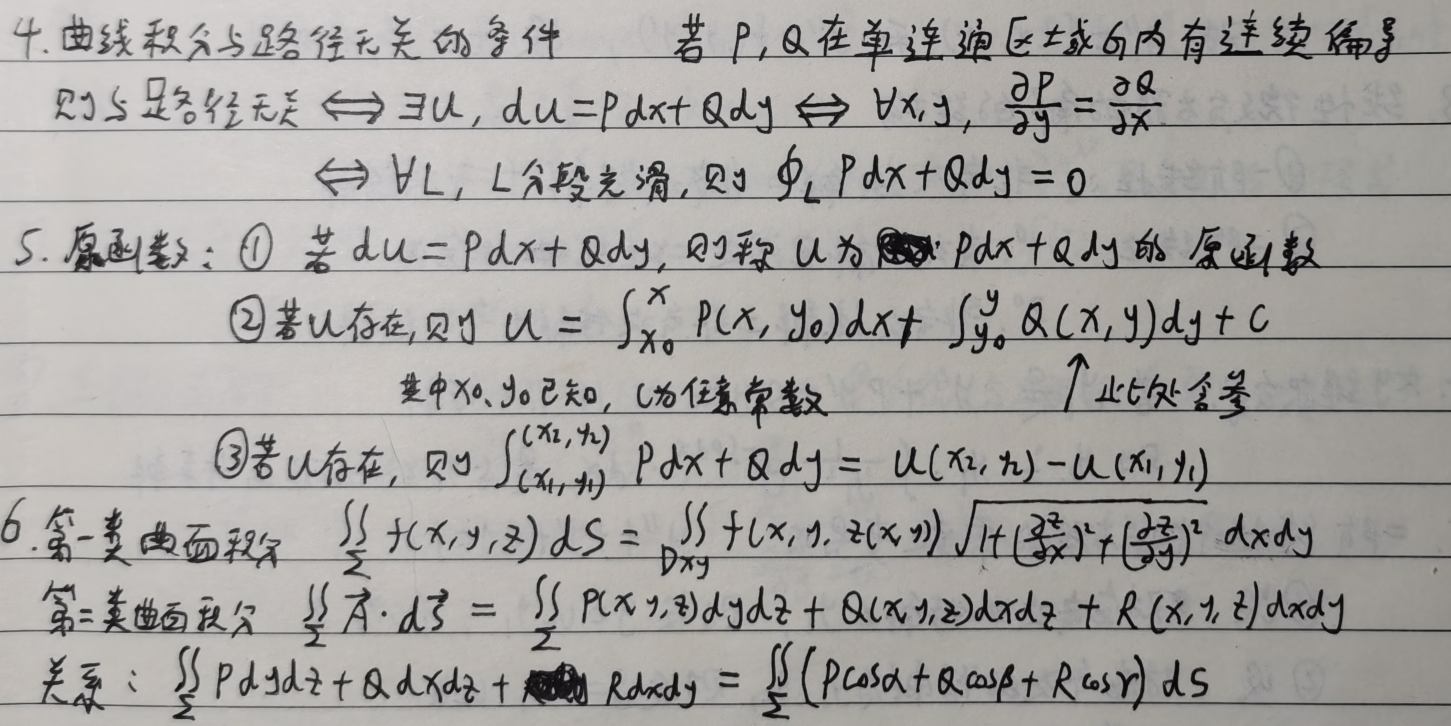 4. 曲线积分与路径无关的条件 若 P, Q 在单连通区域 G 内有连续偏导
则与路径无关 ⟺ ∃u, du = Pdx + Qdy ⟺ ∀x, y, ∂P/∂y = ∂Q/∂x
⟺ ∀L, L分段光滑, 则 ∮_L Pdx + Qdy = 0
5. 原函数: ① 若 du = Pdx + Qdy, 则称 u 为 Pdx + Qdy 的 原函数
② 若u存在, 则 u = ∫_{x0}^{x} P(x, y0)dx + ∫_{y0}^{y} Q(x, y)dy + C
其中x0、y0已知, C为任意常数 ↑此处含参
③ 若u存在, 则 ∫_{(x1, y1)}^{(x2, y2)} Pdx + Qdy = u(x2, y2) - u(x1, y1)
6. 第一类曲面积分 ∬_Σ f(x, y, z) dS = ∬_{Dxy} f(x, y, z(x, y)) √(1+(∂z/∂x)²+(∂z/∂y)²) dxdy
第二类曲面积分 ∬_Σ A⃗·dS⃗ = ∬_Σ P(x, y, z)dydz + Q(x, y, z)dxdz + R(x, y, z)dxdy
关系: ∬_Σ Pdydz + Qdxdz + Rdxdy = ∬_Σ (Pcosα + Qcosβ + Rcosγ) dS